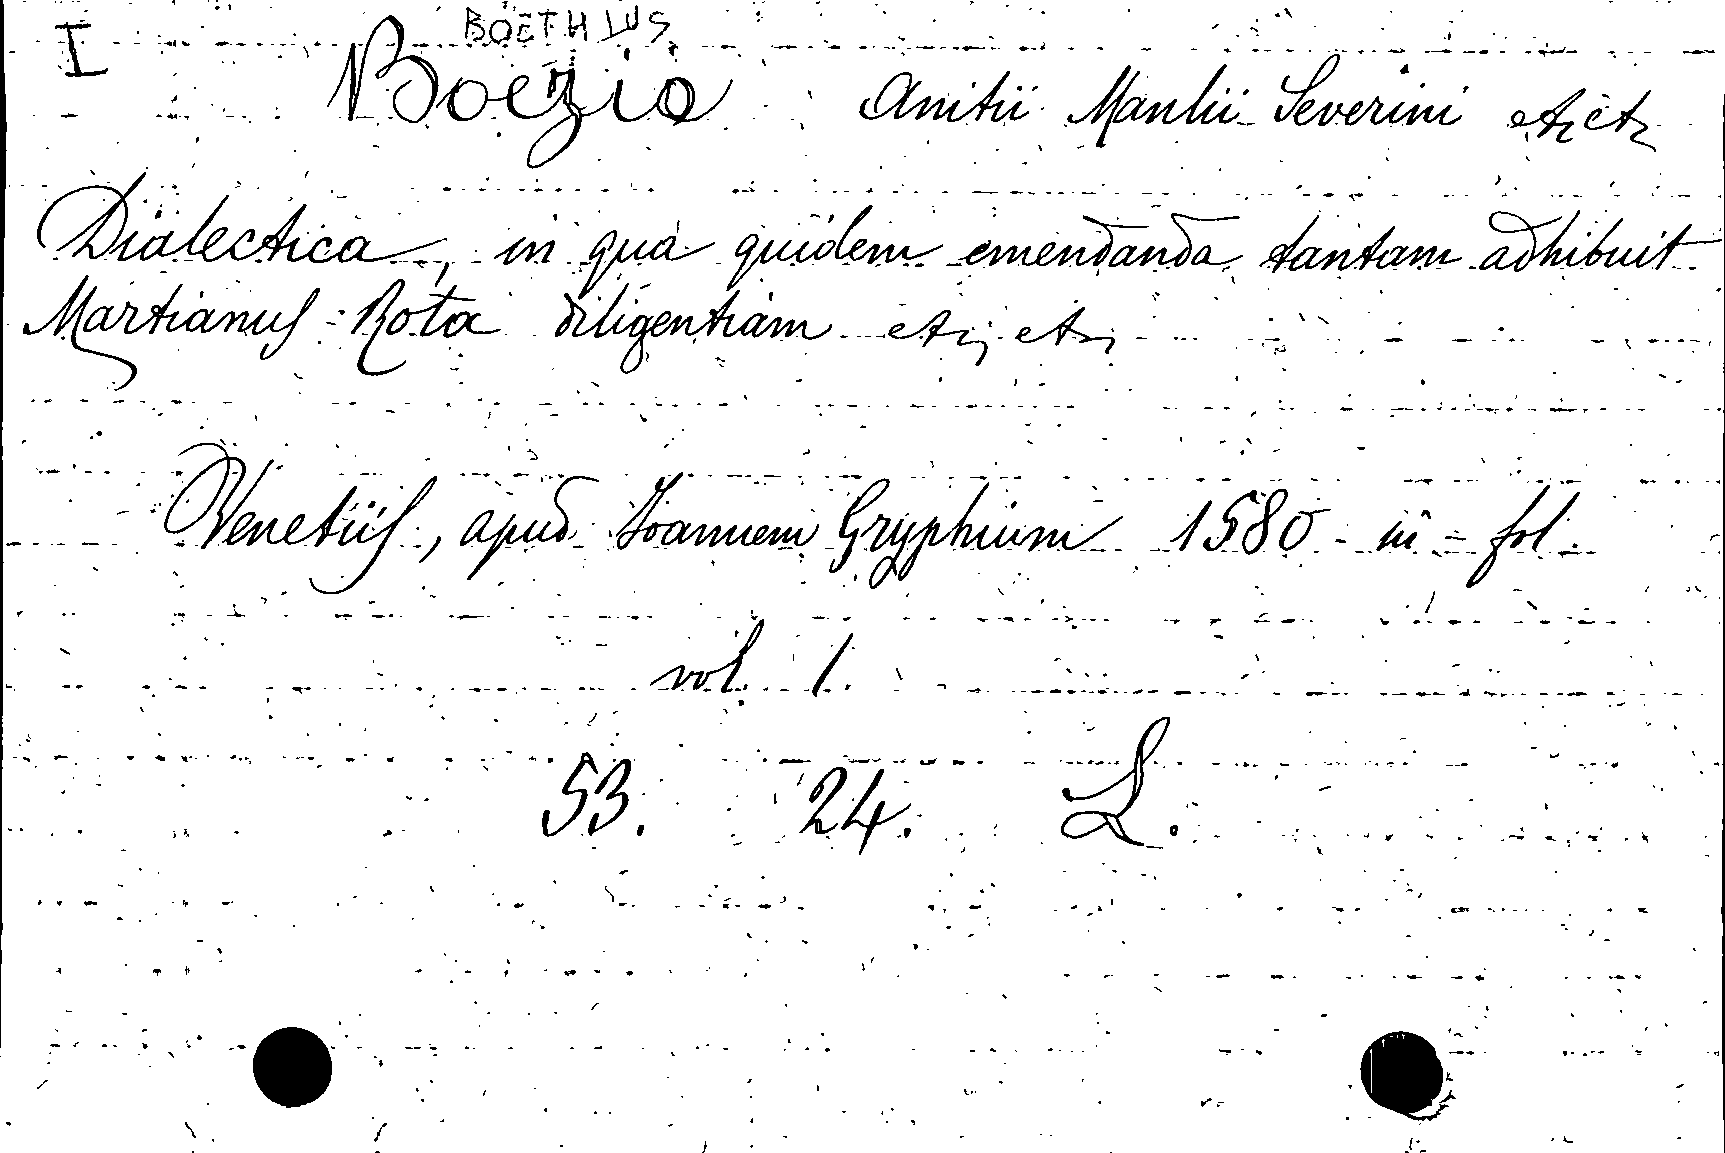 I
BOETHIUS
Boezio Anitii Manlii Severini etc etc
Dialectica, in qua quidem emendanda tantam adhibuit
Martianus Rota diligentiam etc, etc,
Venetiis, apud Joannem Gryphium 1580 - in - fol.
vol. 1.
53. 24. L.